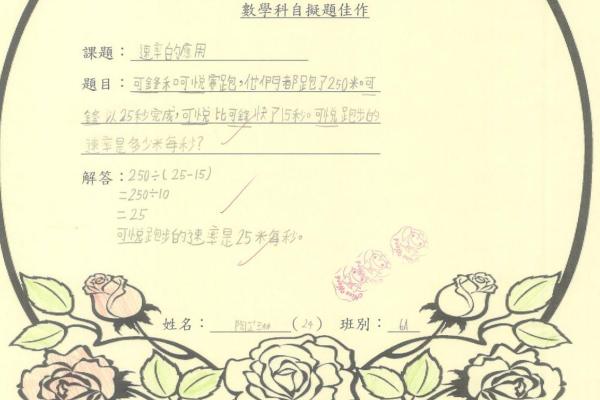 數學科自擬題佳作
課題：速率的應用
題目：可鋒和可悅賽跑，他們都跑了250米。可
鋒以25秒完成，可悅比可鋒快了15秒。可悅跑步的
速率是多少米每秒？
解答：250÷(25-15)
=250÷10
=25
可悅跑步的速率是25米每秒。
姓名：（24） 班別：6A